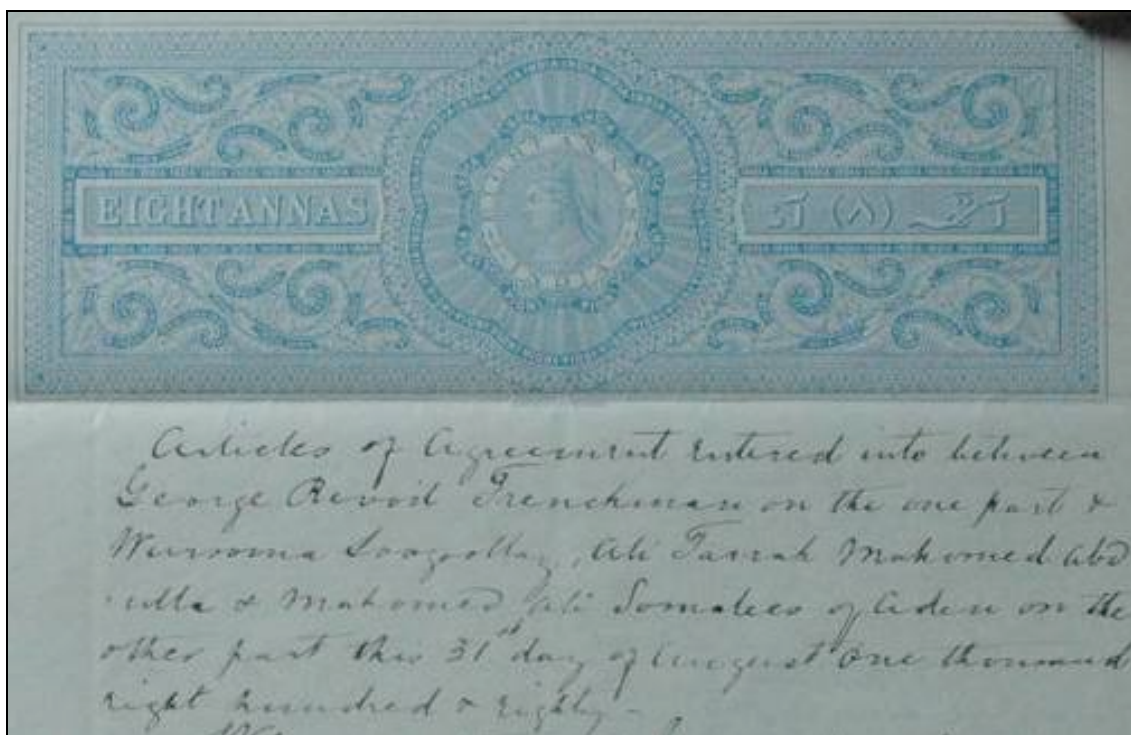 EIGHT ANNAS
آنہ (۸) آٹھ
INDIA
Articles of Agreement entered into between
George Revoil Frenchman on the one part &
Ali Farrah Mahomed Abd
ulla & Mahomed Ali Somalees of Aden on the
other part this 31st day of August One thousand
eight hundred & eighty -